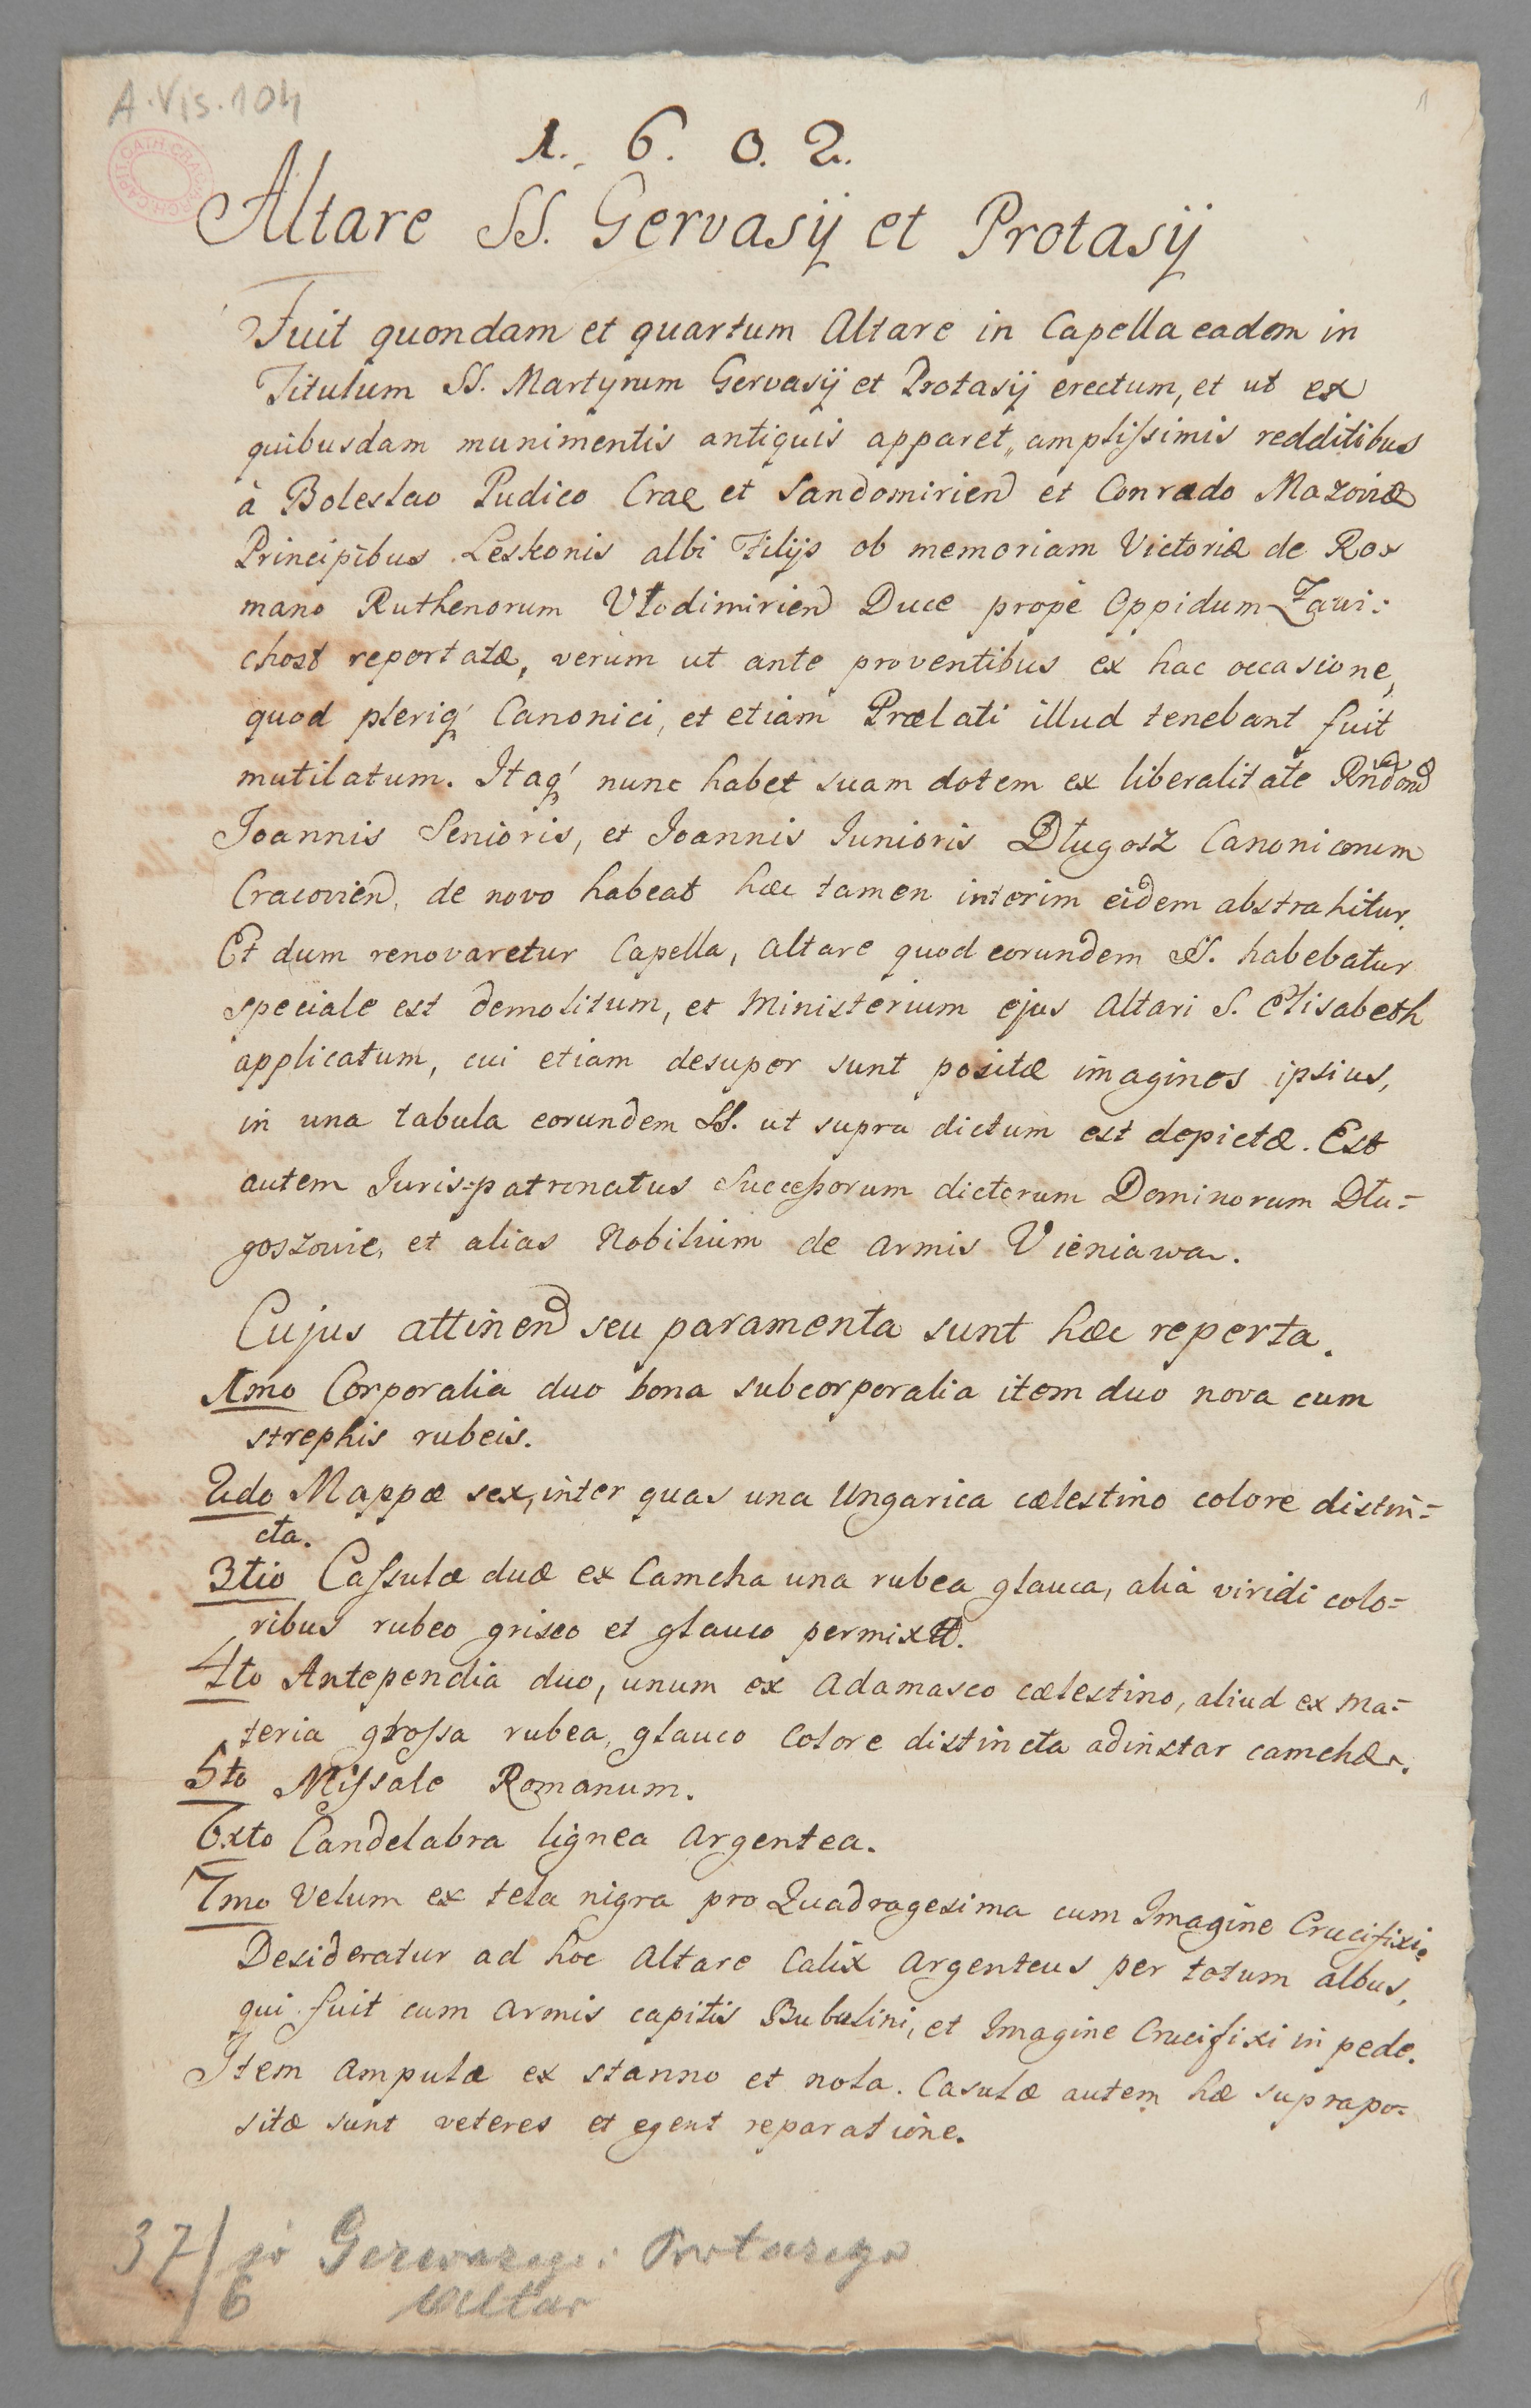 A. Vis. 104
1
1. 6. 0. 2.
Altare SS. Gervasij et Protasij
Fuit quondam et quartum Altare in Capella eadem in
Titulum SS. Martyrum Gervasij et Protasij erectum, et ut ex
quibusdam munimentis antiquis apparet, amplissimis redditibus
à Boleslao Pudico Crac et Sandomirien et Conrado Mazoviæ
Principibus Leskonis albi Filijs ob memoriam Victoriæ de Ro
mano Ruthenorum Vlodimirien Duce propè Oppidum Zawi:
chost reportatæ, verùm ut ante proventibus ex hac occasione,
quod pleriq́ Canonici, et etiam Prælati illud tenebant fuit
mutilatum. Itaq́ nunc habet suam dotem ex liberalitate Rndorum
Joannis Senioris, et Joannis Junioris Długosz Canonicorum
Cracovien, de novo habeat hæc tamen interim eidem abstrahitur.
Et dum renovaretur Capella, Altare quod eorundem SS. habebatur
speciale est demolitum, et Ministerium ejus Altari S. Elisabeth
applicatum, cui etiam desuper sunt positæ imagines ipsius,
in una tabula eorundem SS. ut supra dictum est depictæ. Est
autem Juris-patronatus Successorum dictorum Dominorum Dłu-
goszowie, et alias Nobilium de Armis Vieniawa.
Cujus attinen seu paramenta sunt hæc reperta.
1mo Corporalia duo bona subcorporalia item duo nova cum
strephis rubeis.
2do Mappæ sex, inter quas una Ungarica cælestino colore distin-
cta.
3tio Cassulæ duæ ex Camcha una rubea glauca, alia viridi colo-
ribus rubeo griseo et glauco permixtæ.
4to Antependia duo, unum ex Adamasco cælestino, aliud ex ma-
teria grossa rubea, glauco Colore distincta adinstar camchæ.
5to Missale Romanum.
6xto Candelabra lignea Argentea.
7mo Velum ex tela nigra pro Quadragesima cum Imagine Crucifixi.
Desideratur ad hoc Altare Calix Argenteus per totum albus,
qui fuit cum Armis capitis Bubalini, et Imagine Crucifixi in pede.
Item Ampulæ ex stanno et nola. Casulæ autem hæ suprapo-
sitæ sunt veteres et egent reparatione.
37/ Gerwazego i Protazego
6 Altar